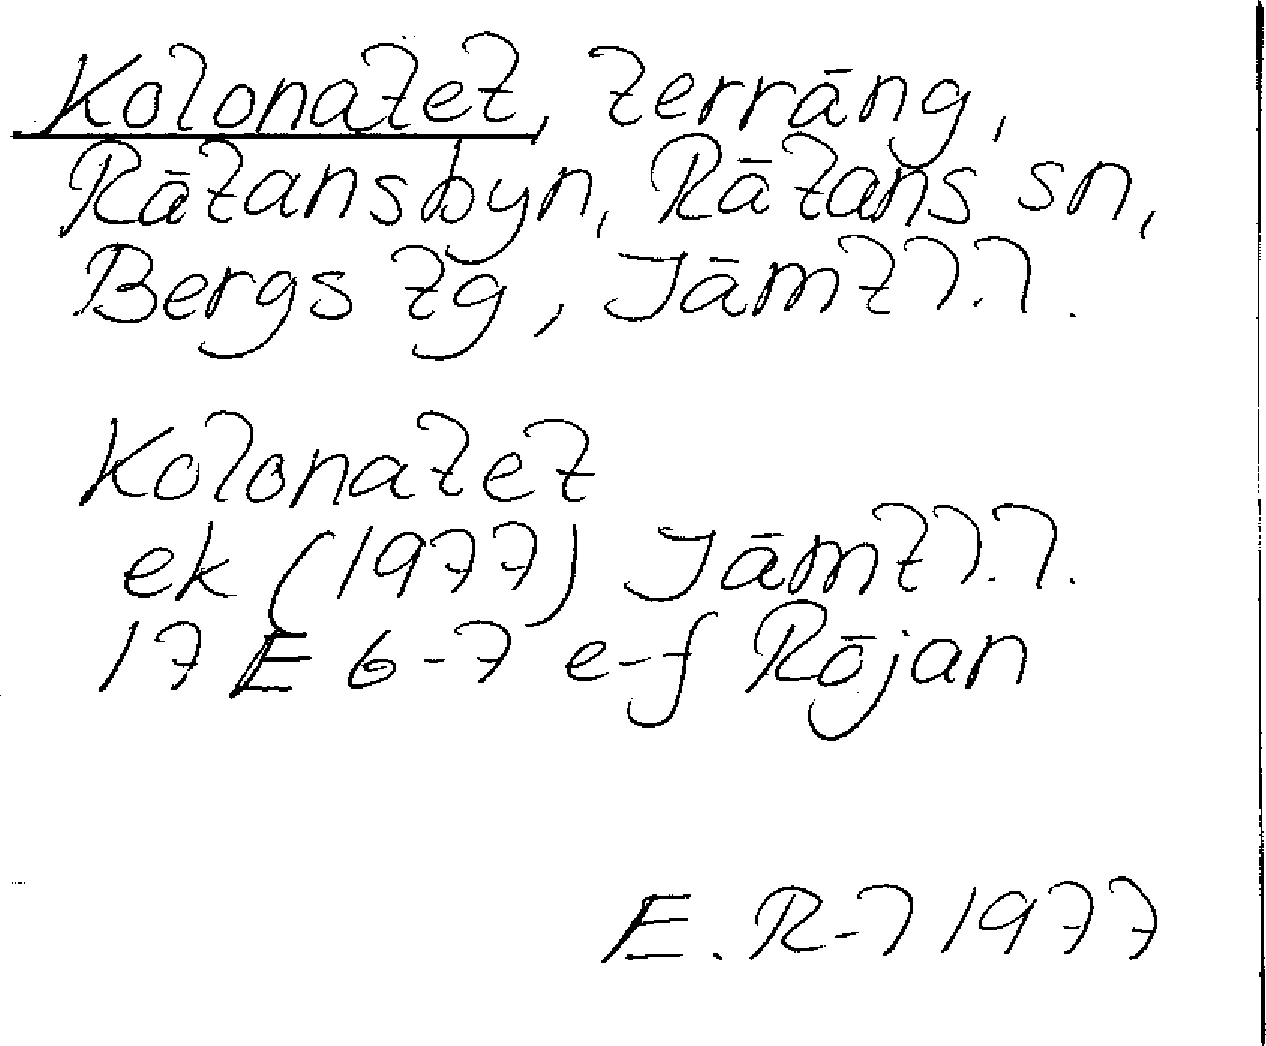 Kolonatet, terräng,
Rätansbyn, Rätans sn,
Bergs tg, Jämtl.l.
Kolonatet
ek (1977) Jämtl.l.
17 E 6-7 e-f Röjan
E. R-l 1977